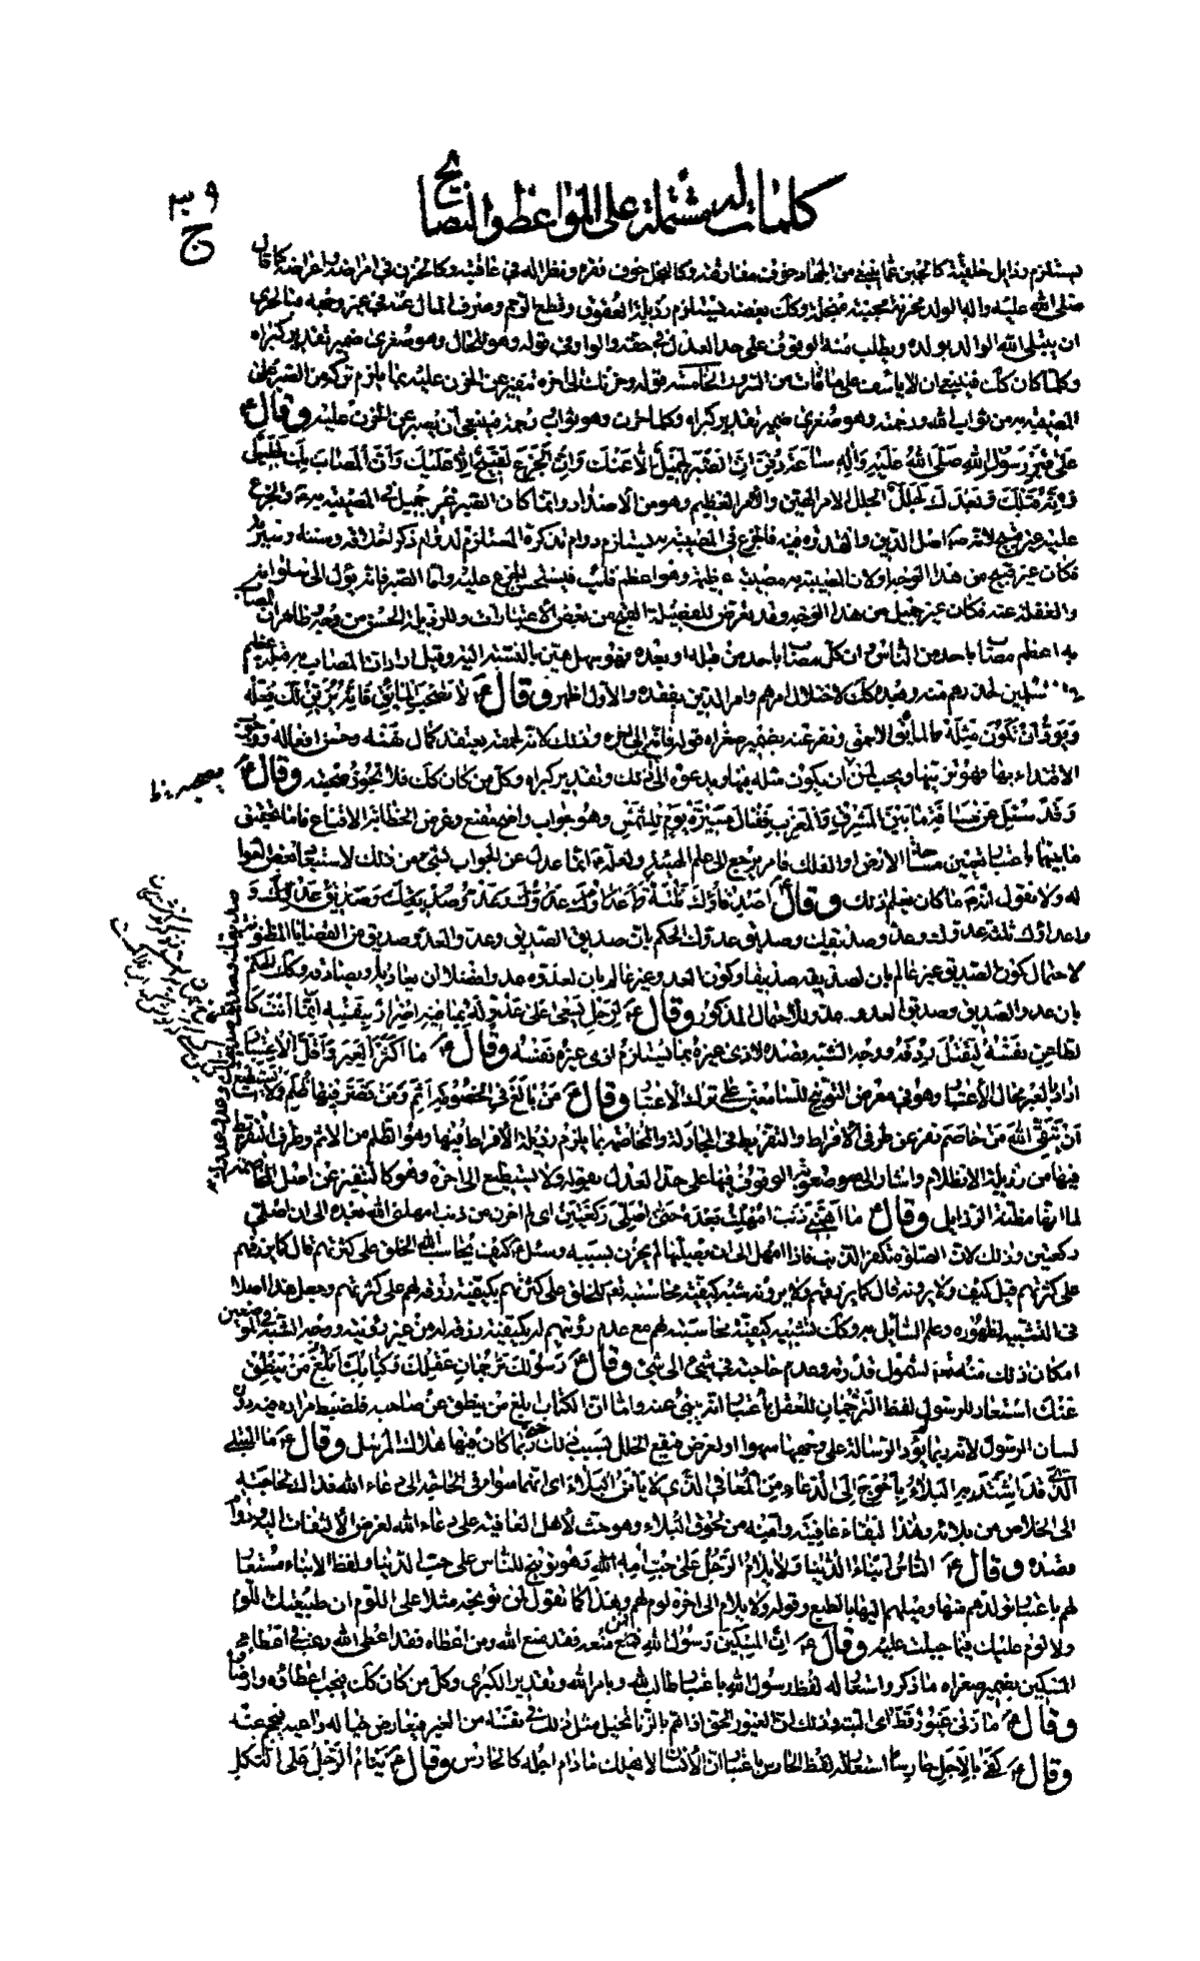 كلمات له مشتملة على المواعظ والنصايح
٣٩
ج
يستلزم رذايل خلقية كالجبن عما ينبغي من الجهاد خوف مفارقته وكالبخل خوف فقره ونظرا له في عاقبته وكالحزن في امراضه واعراضه كما قال
صلى الله عليه واله الولد محزنة مجبنة مبخلة وكك بغضه يستلزم رذيلة العقوق وقطع الرحم وصرف المال عنه
ان يبتلى الله الوالد بولده ويطلب منه الوقوف على حد العدل في حقه والواو في قوله وهو للحال وهو صغرى ضمير تقدير كبراه
وكلما كان كك فينبغي ان لا ياسف على ما فات من الخامسة قوله وحزنك الى اخره تنفير عن الحزن عليه بما يلزم تركه من الصبر على
المصيبة به من ثواب الله ورحمته وهو صغرى ضمير تقدير كبراه وكلما احزن وهو ثواب ورحمة فينبغي ان يصبر عن الحزن عليه وقال ع
على قبر رسول الله صلى الله عليه واله ساعة دفن ان الصبر لجميل الا عنك وان الجزع لقبيح الا عليك وان المصاب بك لجليل
وانه قبلك وبعدك لجلل الجلل الامر الهين والامر العظيم وهو من الاضداد وانما كان الصبر غير جميل في المصيبة به ع والجزع
عليه غير قبيح لانه ص اصل الدين والقدوة فيه فالجزع في المصيبة به يستلزم دوام تذكره المستلزم لدوام ذكر اخلاقه وسننه وسيرته
فكان غير قبيح من هذا الوجه ولان المصيبة به مصيبة عظيمة وهو اعظم فايت فيستحق الجزع عليه واما الصبر فانه يؤل الى سلوانه
والغفلة عنه فكان غير جميل من هذا الوجه وقد تعرض للفضيلة القبح من بعض الاعتبارات وللرذيلة الحسن من وجه ظاهر ان المصاب
به اعظم مصاب باحد من الناس وان كل مصاب باحد من قبله او بعده فهو سهل هين بالنسبة اليه وقيل اراد ان المصاب به قبله عظيم
المسلمين لحذرهم منه وبعده كك لاختلال امرهم وامر الدين بفقده والاول اظهر وقال ع لا تصحب المايق فانه يزين لك فعله
ويود ان تكون مثله المايق الاحمق ونفر عنه بضمير صغراه قوله فانه الى اخره وذلك لانه لحمقه يعتقد كمال نفسه وحسن افعاله ووجوب
الاقتداء بها فهو يزينها ويحب لمن ان يكون مثله فيها ويدعوه الى ذلك وتقدير كبراه وكل من كان كك فلا يجوز صحبته وقال ع
وقد سئل عن مسافة ما بين المشرق والمغرب فقال مسيرة يوم للشمس وهو جواب واضح مقنع وغرض الخطابة الاقناع فاما تحقيق
ما بينهما باعتبار تعيين مساحة الارض او الفلك فامر يرجع الى علم الهيئة ولعله ع انما عدل عن الجواب لشئ من ذلك لاستبعاد بعض العوام
له ولا نقول انه ع ما كان يعلم ذلك وقال ع اصدقاؤك ثلثة واعداؤك عدوك وعدو صديقك وصديق عدوك و
واعداؤك ثلثة عدوك وعدو صديقك وصديق عدوك الحكم بان صديق الصديق وعدو العدو صديق من القضايا المظنونة
لاحتمال كون الصديق غير عالم بان لصديقه صديقا وكون العدو غير عالم بان لعدوه عدوا فضلا ان يعاديه او يصادقه وكك الحكم
بان عدو الصديق وصديق العدو عدو للاحتمال المذكور وقال ع لرجل يسعى على عدو له بما فيه اضرار بنفسه انما انت كال
طاعن نفسه ليقتل ردفه ووجه الشبه قصده لاذى غيره بما يستلزم اذى نفسه وقال ع ما اكثر العبر واقل الاعتبار
اراد بالعبر محال الاعتبار وهو في معرض التوبيخ للسامعين على ترك الاعتبار وقال ع من بالغ في الخصومة اثم ومن قصر فيها ظلم ولا يستطيع
ان يتقى الله من خاصم نفر عن طرفى الافراط والتفريط في المجادلة والمخاصمة بما يلزم رذيلة الافراط فيها وهو الظلم من الاثم وطرف التفريط
فيها من رذيلة الانظلام واشار الى صعوبة الوقوف فيها على حد العدل بقوله ولا يستطيع الى اخره وهو كالتنفير عن اصل المخاصمة
لما انها مظنة الرذايل وقال ع ما اهمني ذنب امهلت بعده حتى اصلى ركعتين اى لم احزن من ذنب امهلنى الله بعده الى ان اصلى
ركعتين وذلك لان الصلوة مكفرة الذنب فاذا امهل الى ان يصليها لم يحزن بسببه وسئل ع كيف يحاسب الله الخلق على كثرتهم قال كما يرزقهم
على كثرتهم قيل كيف ولا يرونه قال كما يرزقهم ولا يرونه شبه كيفية محاسبته تعم للخلق على كثرتهم بكيفية رزقه لهم على كثرتهم وجعل هذا اصلا
في التشبيه لظهوره وعلم السايل به وكك تشبيه كيفية محاسبته لهم مع عدم رؤيتهم له بكيفية رزقه لهم من غير رؤيته ووجه الشبه في الموضعين
امكان ذلك منه تعم لشمول قدرته وعدم حاجته في شئ الى شئ وقال ع رسولك ترجمان عقلك وكتابك ابلغ من ينطق
عنك استعار للرسول لفظ الترجمان للعقل باعتبار انه ينبئ عنه واما ان الكتاب ابلغ من ينطق عن صاحبه فلضبط مراده فيه دون
لسان الرسول لانه ربما يؤد الرسالة على وجهها سهوا او لغرض فيقع الخلل بسبب ذلك وربما كان فيها هلاك المرسل وقال ع ما المبتلى
الذي قد اشتد به البلاء باحوج الى الدعاء من المعافى الذي لا يامن البلاء اى انهما سواء في الحاجة الى دعاء الله فذاك لحاجته
الى الخلاص من بلائه وهذا لبقاء عافيته وامنه من لحوق البلاء وهو حث لاهل العافية على دعاء الله لغرض الالتفات اليه ودوام
قصده وقال ع الناس ابناء الدنيا ولا يلام الرجل على حب امه وهو توبيخ للناس على حب الدنيا ولفظ الابناء مستعار
لهم باعتبار تولدهم منها وميلهم اليها بالطبع وقوله ولا يلام الى اخره لوم لهم وهذا كما نقول لمن توبخه مثلا على اللوم ان طبيعتك اللوم
ولا لوم عليك فيما جبلت عليه وقال ع ان المسكين رسول الله فمن منعه فقد منع الله ومن اعطاه فقد اعطى الله رغب في اعطاء
المسكين بضمير صغراه ما ذكر واستعار له لفظ رسول الله باعتبار انه طالب لله وبامر الله وتقدير الكبرى وكل من كان كك فيجب اعطاؤه وارضاؤه
وقال ع ما زنى غيور قط اى البتة وذلك ان الغيور الحق اذا هم بالزنا تخيل مثل ذلك في نفسه من الغير فيعارض خياله داعيه فيحجم عنه
وقال ع كفى بالاجل حارسا استعار له لفظ الحارس باعتبار ان الانسان لا يهلك ما دام اجله كالحارس وقال ع ينام الرجل على الثكل